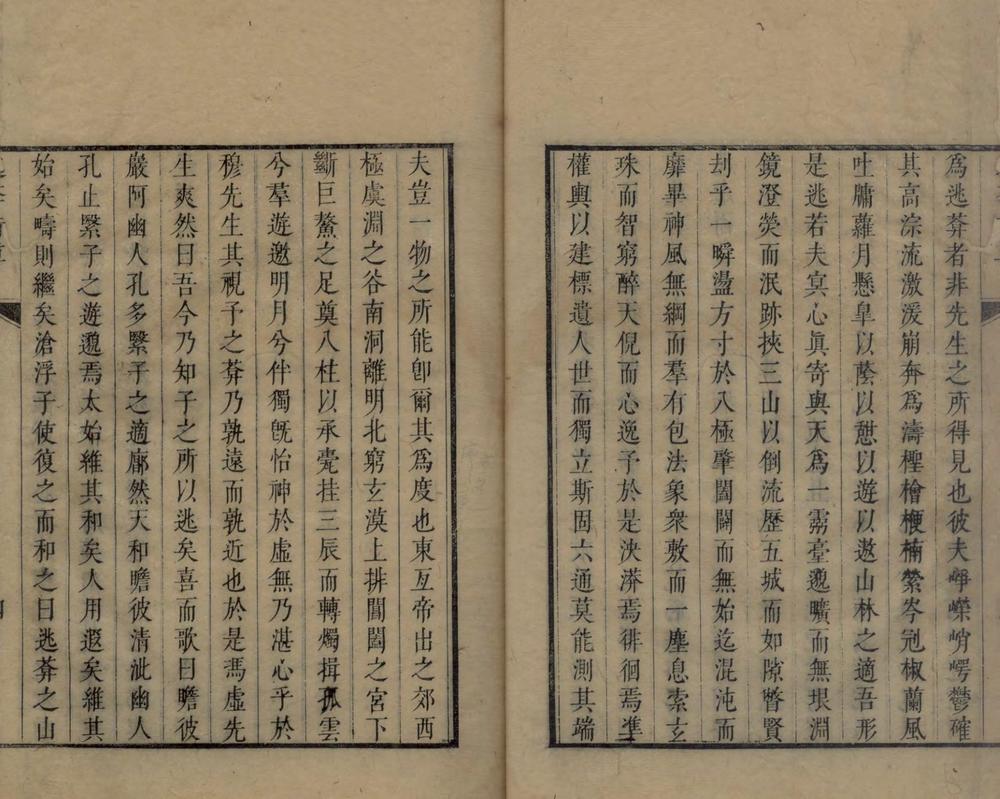 爲逃莽者非先生之所得見也彼夫崢嶸峭崿鬱確
其高淙流激湲崩奔爲濤檉檜楩楠縈岑冠椒蘭風
吐牖蘿月懸皐以蔭以憇以遊以遨山林之適吾形
是逃若夫㝠心眞寄與天爲一靈臺邈曠而無垠淵
鏡澄熒而泯跡挾三山以倒流歷五城而如隙瞥賢
刦乎一瞬盪方寸於八極肇闔闢而無始迄混沌而
靡畢神風無綱而羣有包法象衆敷而一塵息索玄
珠而智窮醉天倪而心逸予於是泱漭焉徘徊焉凖
權輿以建標遺人世而獨立斯固六通莫能測其端
夫豈一物之所能卽爾其爲度也東亙帝出之郊西
極虞淵之谷南洞離明北窮玄漠上排閶闔之宮下
斷巨鰲之足奠八柱以承甍挂三辰而轉燭揖孤雲
兮羣遊邀明月兮伴獨旣怡神於虛無乃湛心乎於
穆先生其視予之莽乃孰遠而孰近也於是馮虛先
生爽然曰吾今乃知子之所以逃矣喜而歌曰瞻彼
巖阿幽人孔多繄子之適廓然天和瞻彼清沘幽人
孔止繄子之遊邈焉太始維其和矣人用遐矣維其
始矣疇則繼矣滄浮子使復之而和之曰逃莽之山